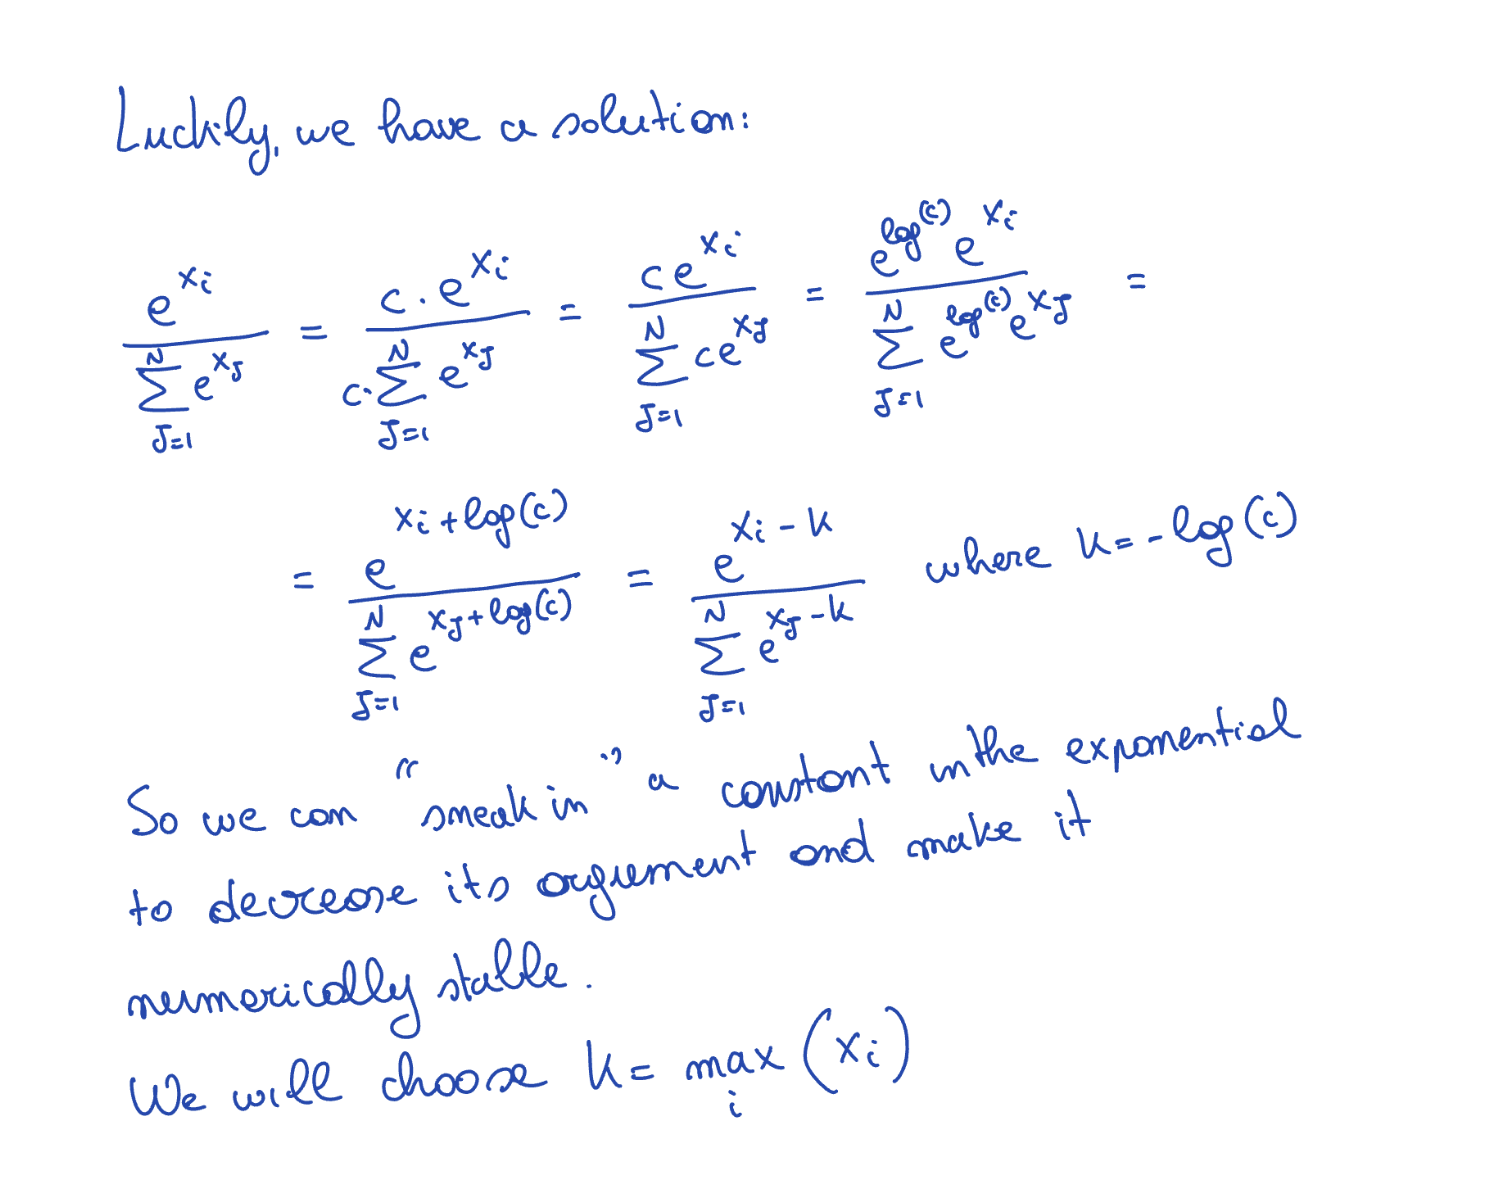 Luckily, we have a solution:
\frac{e^{x_i}}{\sum_{J=1}^{N} e^{x_J}} = \frac{c \cdot e^{x_i}}{c \cdot \sum_{J=1}^{N} e^{x_J}} = \frac{c e^{x_i}}{\sum_{J=1}^{N} c e^{x_J}} = \frac{e^{\log(c)} e^{x_i}}{\sum_{J=1}^{N} e^{\log(c)} e^{x_J}} =
= \frac{e^{x_i + \log(c)}}{\sum_{J=1}^{N} e^{x_J + \log(c)}} = \frac{e^{x_i - k}}{\sum_{J=1}^{N} e^{x_J - k}} where k = -log(c)
So we can "sneak in" a constant in the exponential
to decrease its argument and make it
numerically stable.
We will choose k = \max_i (x_i)